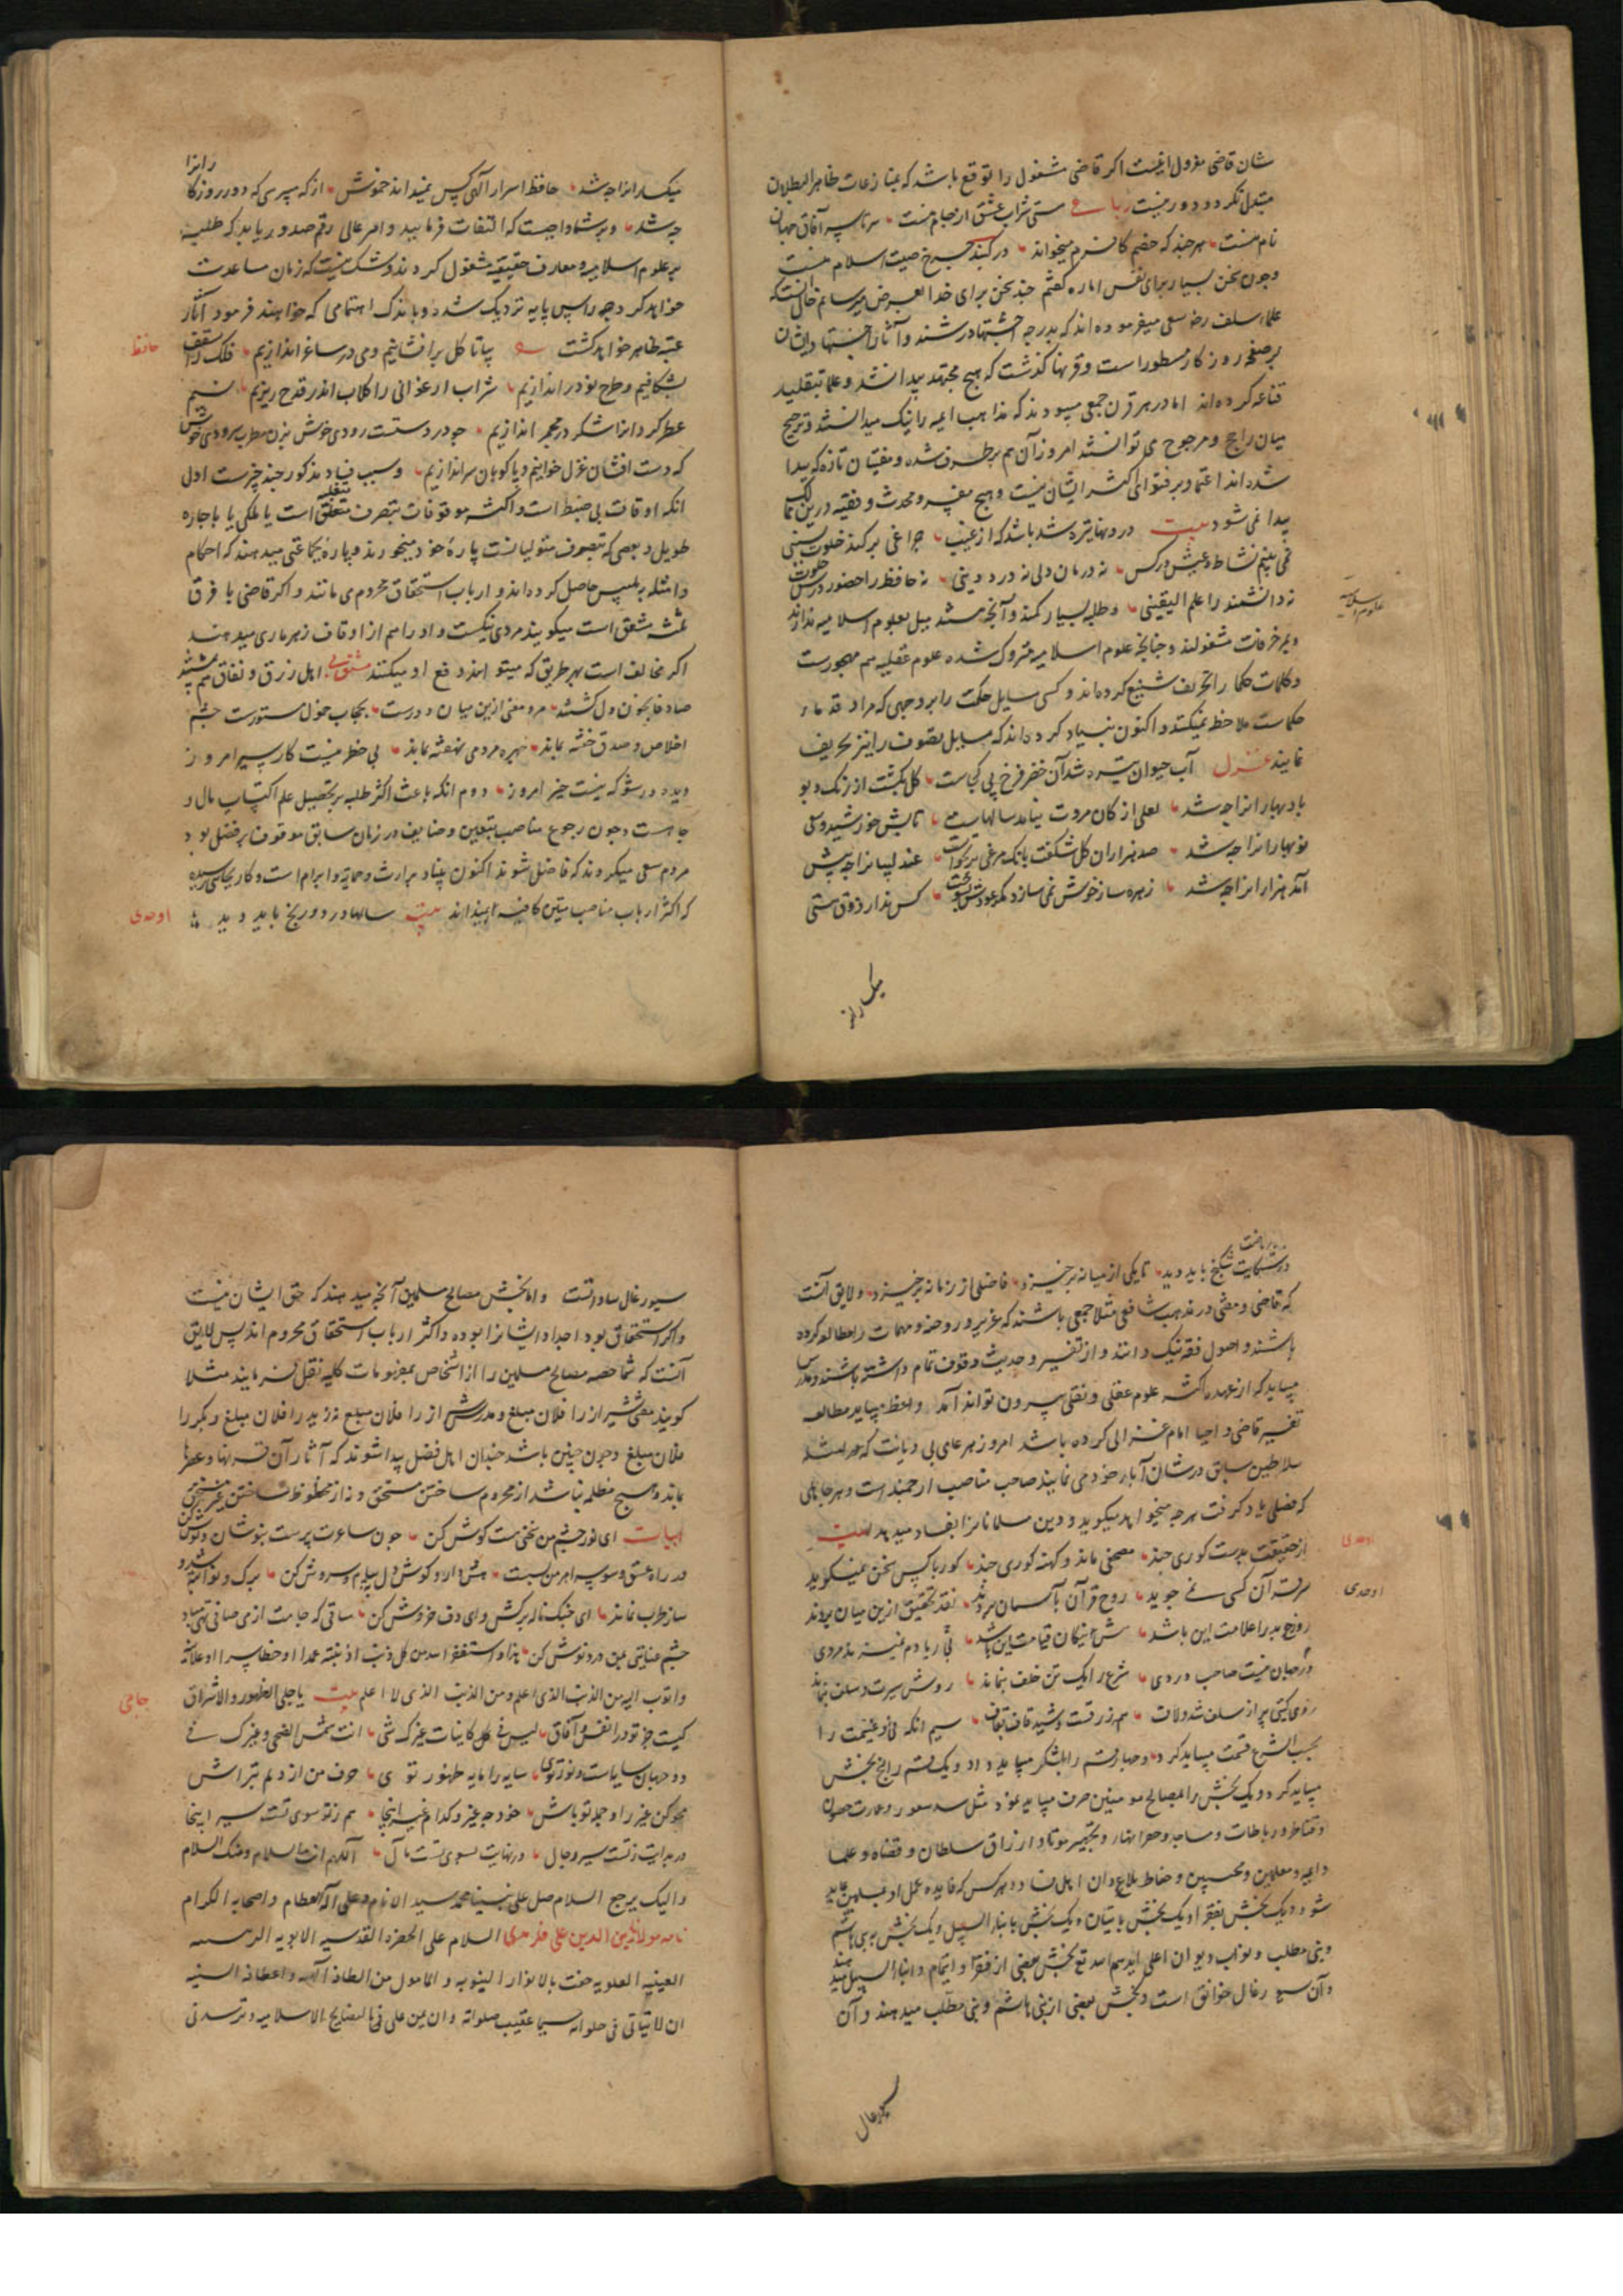 شان قاضی معزول نیست اکر قاضی مشغول را توقع باشد که بمنازعات ظاهر البطلان
مبتدل نکردد دور نیست رباعی مستی شراب عشق از جام منست سرتاسر آفاق جهان
نام منست هر چند که خصم کافرم میخواند در کنبد چرخ صیت اسلام منست
و چون سخن بسیار برای نفس اماره کفتم چند سخن برای خدا بعرض میرسانم
علماء سلف رضه سعی میفرموده اند که بدرجه اجتهاد رسند و آثار اجتهاد ایشان
بر صفحه روزکار مسطور است و قرنها کذشت که هیچ مجتهد پیدا نشد و علما بتقلید
قناعه کرده اند اما در هر قرن جمعی میبودند که مذاهب ایمه را نیک میدانستند و ترجیح
میان راجح و مرجوح می توانستند امروز آن هم برطرف شده و مفتیان تازه که پیدا
شده اند اعتماد بر فتوای اکثر ایشان نیست و هیچ مفسر و محدث و فقیه درین
پیدا نمی شود بیت درونها تیره شد باشد که از غیب چراغی بر کند خلوت نشینی
نمی بینم نشاط عیش در کس نه درمان دلی نه درد دینی نه حافظ را حضور درس خلوت
نه دانشمند را علم الیقینی و طلبه بسیار کمند و آنچه هستند میل بعلوم اسلامیه ندارند
و بمزخرفات مشغولند و چنانچه علوم اسلامیه متروک شده علوم عقلیه هم مهجورست
و کلمات حکما را تحریف شنیع کرده اند و کسی مسایل حکمت را بر وجهی که مراد قدماء
حکماست ملاحظه نمیکند و اکنون بنیاد کرده اند که مسایل تصوف را نیز تحریف
نمایند غزل آب حیوان تیره شد آن خضر فرخ پی کجاست کل بکشت از رنک و بو
باد بهاران را چه شد لعلی از کان مروت بر نیامد سالهاست تابش خورشید و سعی
نوبهاران را چه شد صد هزاران کل شکفت بانک مرغی برنخواست عندلیبان را چه پیش
آمد هزاران را چه شد زهره ساز خوش نمی سازد مکر عودش بسوخت کس ندارد ذوق مستی
میکساران
علوم اسلامیه
میکساران را چه شد حافظ اسرار آلهی کس نمیداند خموش از که میپرسی که دور روزکاران را
چه شد و بر شما واجبست که التفات فرمایید و امر عالی رقم صدور یابد که طلبه
بر علوم اسلامیه و معارف حقیقیه مشغول کردند و شک نیست که زمان مساعدت
خواهد کرد و چراغ پس پایه نزدیک شده و باندک اهتمامی که خواهند فرمود آثار
عنقریب ظاهر خواهد کشت بیا تا کل بر افشانیم و می در ساغر اندازیم فلک را سقف
بشکافیم و طرح نو در اندازیم شراب ارغوانی را کلاب اندر قدح ریزیم نسیم
عطرکردان را شکر در مجمر اندازیم چو در دستست رودی خوش بزن مطرب سرودی خوش
که دست افشان غزل خوانیم و پاکوبان سر اندازیم و سبب فساد مذکور چند چیزست اول
انکه اوقات بی ضبط است و اکثر موقوفات بتصرف متغلبه متعلق است یا بملکی یا باجاره
طویل و بعضی که بتصرف متولیانست پاره خود میخورند و پاره بجماعتی میدهند که احکام
و امثله بتلبیس حاصل کرده اند و ارباب استحقاق محروم می مانند و اکر قاضی با فرق
ثمنه متفق است میکویند مردی نیکست و او را هم از اوقاف زهرماری میدهند
اکر مخالف است بهر طریق که میتوانند دفع او میکنند مثنوی اهل رزق و نفاق
صادقان خون دل کشتند مرد معنی ازین میان دورست بحجاب خمول مستورست چشم
اخلاص و صدق خفته بماند چهره مردمی نهفته بماند بی خطر نیست کار سیر امروز
دیده در شو که نیست خیر امروز دوم انکه باعث اکثر طلبه بر تحصیل علم اکتساب مال و
جاهست و چون رجوع مناصب بتعیین وصنایف در زمان سابق موقوف بر فضل بود
مردم سعی میکردند که فاضل شوند اکنون بنیاد بر ارث و حمایه و ابرام است و کار بجایی رسیده
که اکثر ارباب مناصب متن کافیه نمیدانند بیت سالها درد و رنج باید دید
حافظ
اوحدی
در شکایت شکنج باید دید تا یکی از میانه برخیزد فاضلی از زمانه برخیزد و لایق آنست
که قاضی و مفتی در مذهب شافعی مثلا جمعی باشند که عزیز و روضه و مهمات را مطالعه کرده
باشند و اصول فقه نیک دانند و از تفسیر و حدیث وقوف تمام داشته باشند و مدرس
میباید که از عهده اکثر علوم عقلی و نقلی بیرون تواند آمد و واعظ میباید مطالعه
تفسیر قاضی و احیا امام غزالی کرده باشد امروز هر عامی بی دیانت که امثله
سلاطین سابق در شان آبا خود می نمایند صاحب مناصب ارجمند است و هر جاهلی
که فصلی یاد کرفت هر چه میخواهد میکوید و دین مسلمانان را بفساد میدهد بیت
از حقیقت بدست کوری چند مصحفی ماند و کهنه کوری چند کور با کس سخن نمیکوید
سر قرآن کسی نمی جوید روح قرآن بآسمان بردند نقد تحقیق ازین میان بردند
روز بد را علامت این باشد قیامت این باشد
در جهان نیست صاحب دردی شرع را یک تن خلف بنماند روش سیرت سلف بنماند
سیم انکه فی و غنیمت را
بحسب الشرع قسمت میباید کرد و چهار قسم را بلشکر میباید داد و یک قسم را پنج بخش
میباید کرد و یک بخش را بمصالح مومنین صرف میباید نمود مثل سد ثغور و عمارت حصون
و قناطر و رباطات و مساجد و حفر انهار و تجهیز موتا و ارزاق سلطان و قضاه و علما
شود و یک بخش بفقرا و یک بخش بایتان و یک بخش بابناء السبیل و یک بخش به بنی هاشم
و بنی مطلب و نواب دیوان اعلی بخش بعضی از فقرا و ایتام و ابناء السبیل میدهند
و آن سیورغال خوانق است و بخش بعضی از بنی هاشم و بنی مطلب میدهند و آن
سیورغال
اوحدی
اوحدی
سیورغال ساداتست و اما بخش مصالح مسلمین آنچه میدهند که حق ایشان نیست
و اکر استحقاق بود اجداد ایشان را بوده و اکثر ارباب استحقاق محروم اند پس لایق
آنست که شما حصه مصالح مسلمین را از اشخاص بمفهومات کلیه نقل فرمایند مثلا
کویند مفتی شیراز را فلان مبلغ و مدرس شیراز را فلان مبلغ و را فلان مبلغ و دیکر را
فلان مبلغ و چون چنین باشد چندان اهل فضل پیدا شوند که آثار آن قرنها و عصرها
بماند و هیچ مظلمه نباشد از محروم ساختن مستحق و نه از محظوظ ساختن غیر مستحق
ابیات ای نور چشم من سخنی هست کوش کن چون ساغرت پرست بنوشان و نوش کن
در راه عشق وسوسه اهرمن بسیست هش دار و کوش دل به پیام سروش کن برک و نوا تبه شد و
ساز طرب نماند ای چنک ناله برکش و ای دف خروش کن ساقی که جامت از می صافی تهی مباد
چشم عنایتی بمن درد نوش کن هذا و استغفر الله من کل ذنب اذنبته عمدا او خطا سرا او علانیه
و اتوب الیه من الذنب الذی اعلم و من الذنب الذی لا اعلم بیت یا جلی الظهور و الاشراق
کیست جز تو در انفس و آفاق لیس فی الکاینات غیرک شی انت شمس الضحی و غیرک فی
دو جهان سایه است و نور تویی سایه را مایه ظهور تویی حرف من از دلم بتراش
محو کن غیر را و جمله تو باش خود چه غیر و کدام غیر اینجا هم ز تو سوی تست سیر اینجا
در بدایت ز تست سیر رجال در نهایت بسوی تست مآل اللهم انت السلام و منک السلام
و الیک یرجع السلام صل علی نبینا محمد سید الانام و علی آله العظام و اصحابه الکرام
السلام علی الحضره القدسیه الابویه
العلویه حفت بالانوار النبویه و المامول من الطافه و اعطافه السنیه
جامی